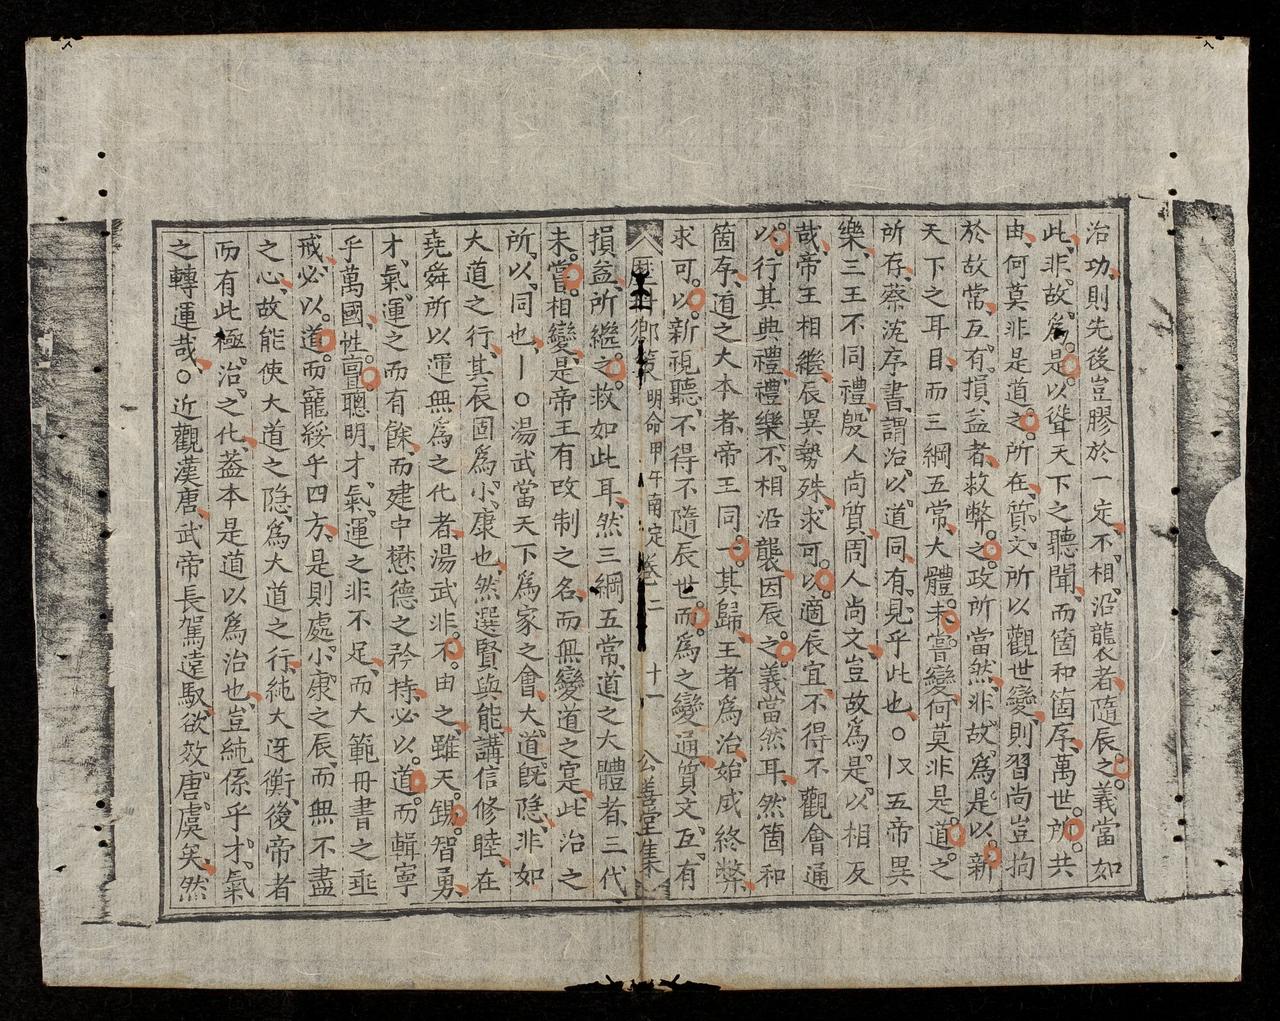 治功則先後豈膠於一定不相沿襲者隨辰之義當如
此非故爲是以聳天下之聽聞而箇和箇序萬世所共
由何莫非是道之所在質文所以觀世變則習尚豈拘
於故常互有損益者救弊之政所當然非故爲是以新
天下之耳目而三綱五常大體未嘗變何莫非是道之
所存蔡沈序書謂治以道同有見乎此也○又五帝異
樂三王不同禮殷人尚質周人尚文豈故爲是以相反
哉帝王相繼辰異勢殊求可以適辰宜不得不觀會通
以行其典禮禮樂不相沿襲因辰之義當然耳然箇和
箇存道之大本者帝王同一其歸王者爲治始咸終弊
求可以新視聽不得不隨辰世而爲之變通質文互有
鄉策 明命甲午南定 卷二 十一 公善堂集
損益所繼之救如此耳然三綱五常道之大體者三代
未嘗相變是帝王有改制之名而無變道之寔此治之
所以同也｜○湯武當天下爲家之會大道旣隐非如
大道之行其辰固爲小康也然選賢與能講信修睦在
堯舜所以運無爲之化者湯武非不由之雖天錫智勇
才氣運之而有餘而建中懋德之矜持必以道而輯寧
乎萬國性亶聰明才氣運之非不足而大範冊書之垂
戒必以道而寵綏乎四方是則處小康之辰而無不盡
之心故能使大道之隐爲大道之行純大迓衡後帝者
而有此極治之化葢本是道以爲治也豈純係乎才氣
之轉運哉○近觀漢唐武帝長駕遠馭欲效唐虞矣然